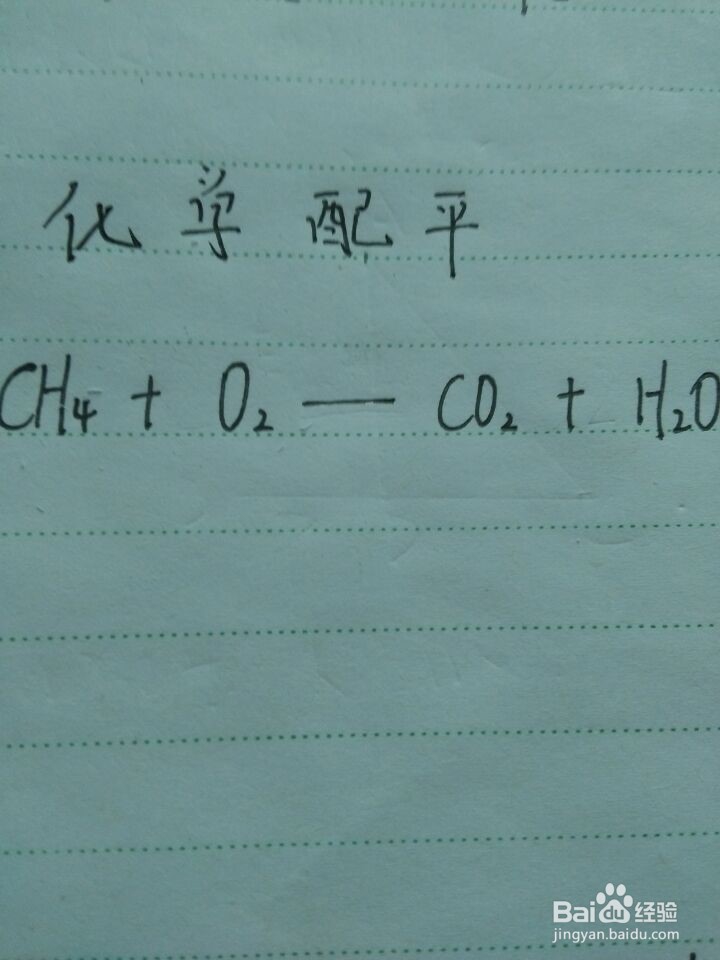 化学配平
CH₄ + O₂ — CO₂ + H₂O
Baidu经验
jingyan.baidu.com